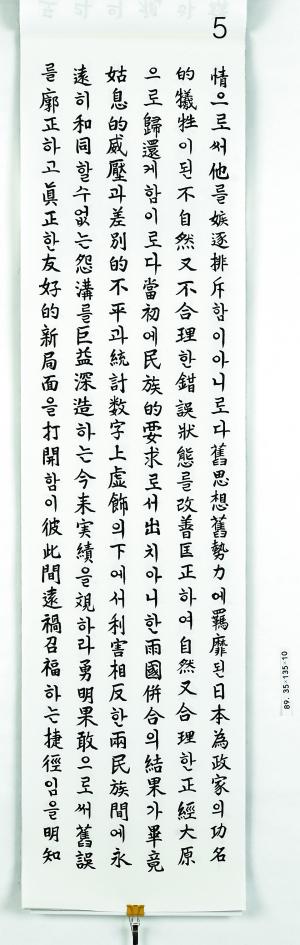 5
情으로써他를嫉逐排斥함이아니로다舊思想舊勢力에羈靡된日本為政家의功名
的犧牲이된不自然又不合理한錯誤狀態를改善匡正하여自然又合理한正經大原
으로歸還케함이로다當初에民族的要求로서出치아니한兩國併合의結果가畢竟
姑息的威壓과差別的不平과統計数字上虛飾의下에서利害相反한兩民族間에永
遠히和同할수없는怨溝를巨益深造하는今来実績을覌하라勇明果敢으로써舊誤
를廓正하고眞正한友好的新局面을打開함이彼此間遠禍召福하는捷徑임을明知
89. 35×135×10